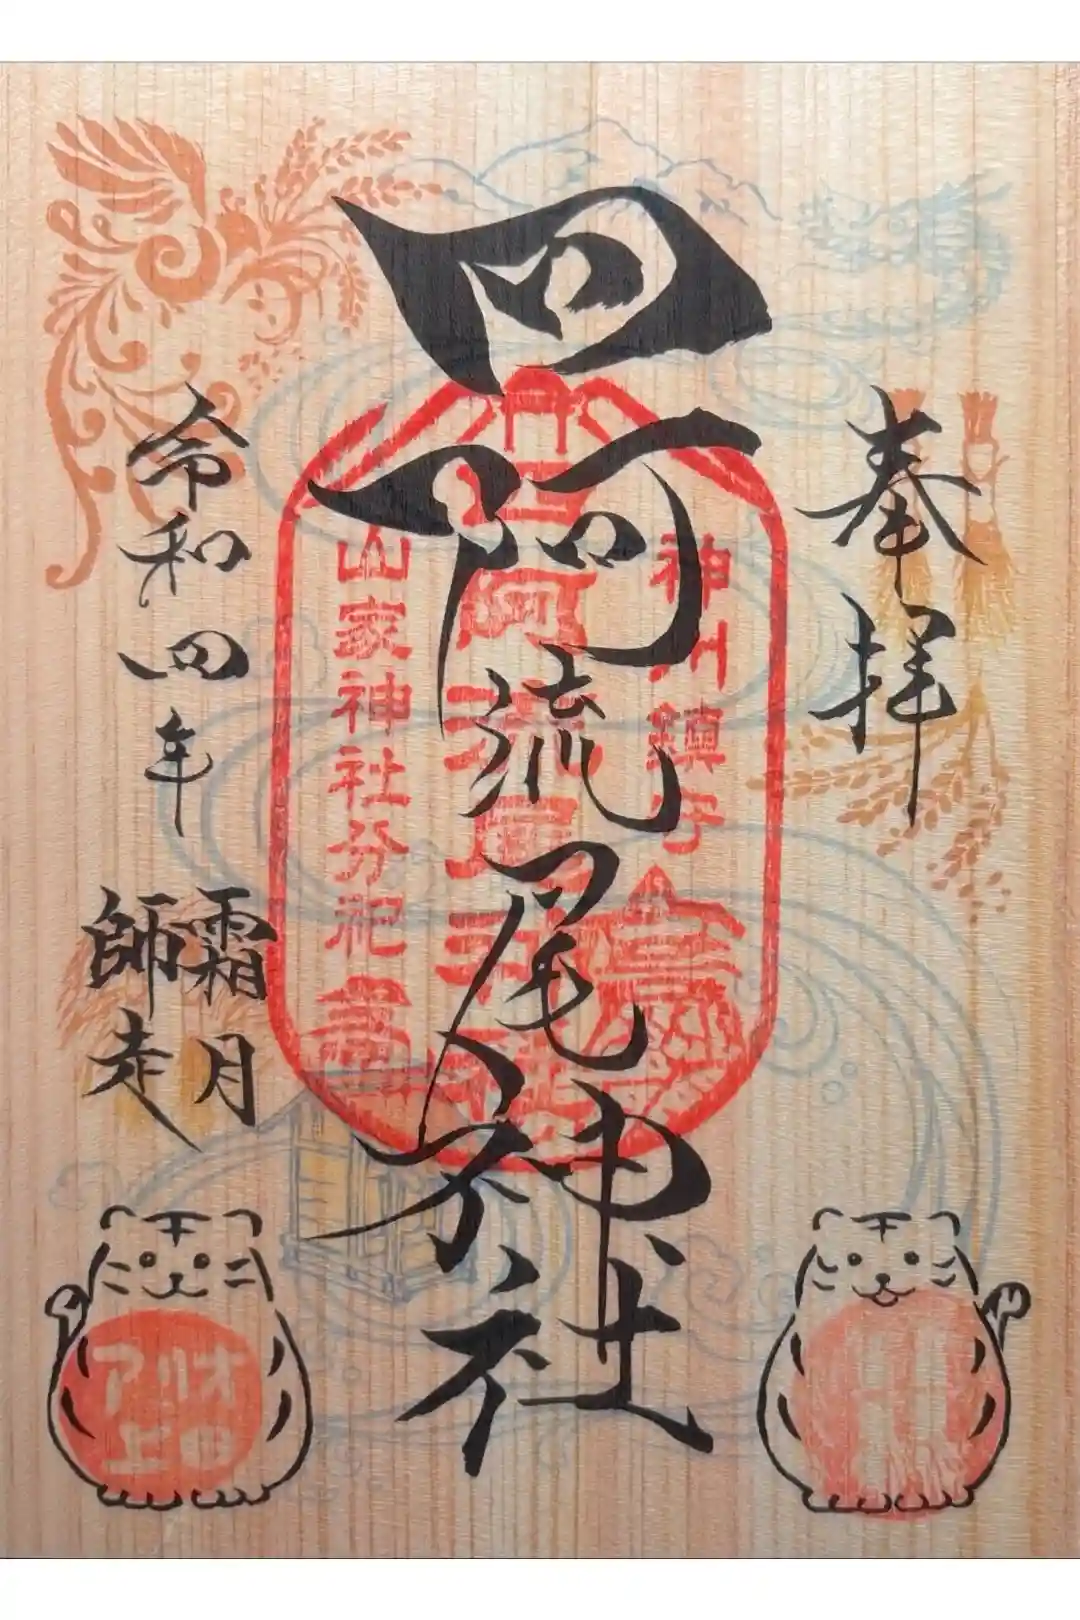 奉拝
四阿流尾神社
神州鎮守
山家神社分祀
令和四年
霜月
師走
アリオ
上田